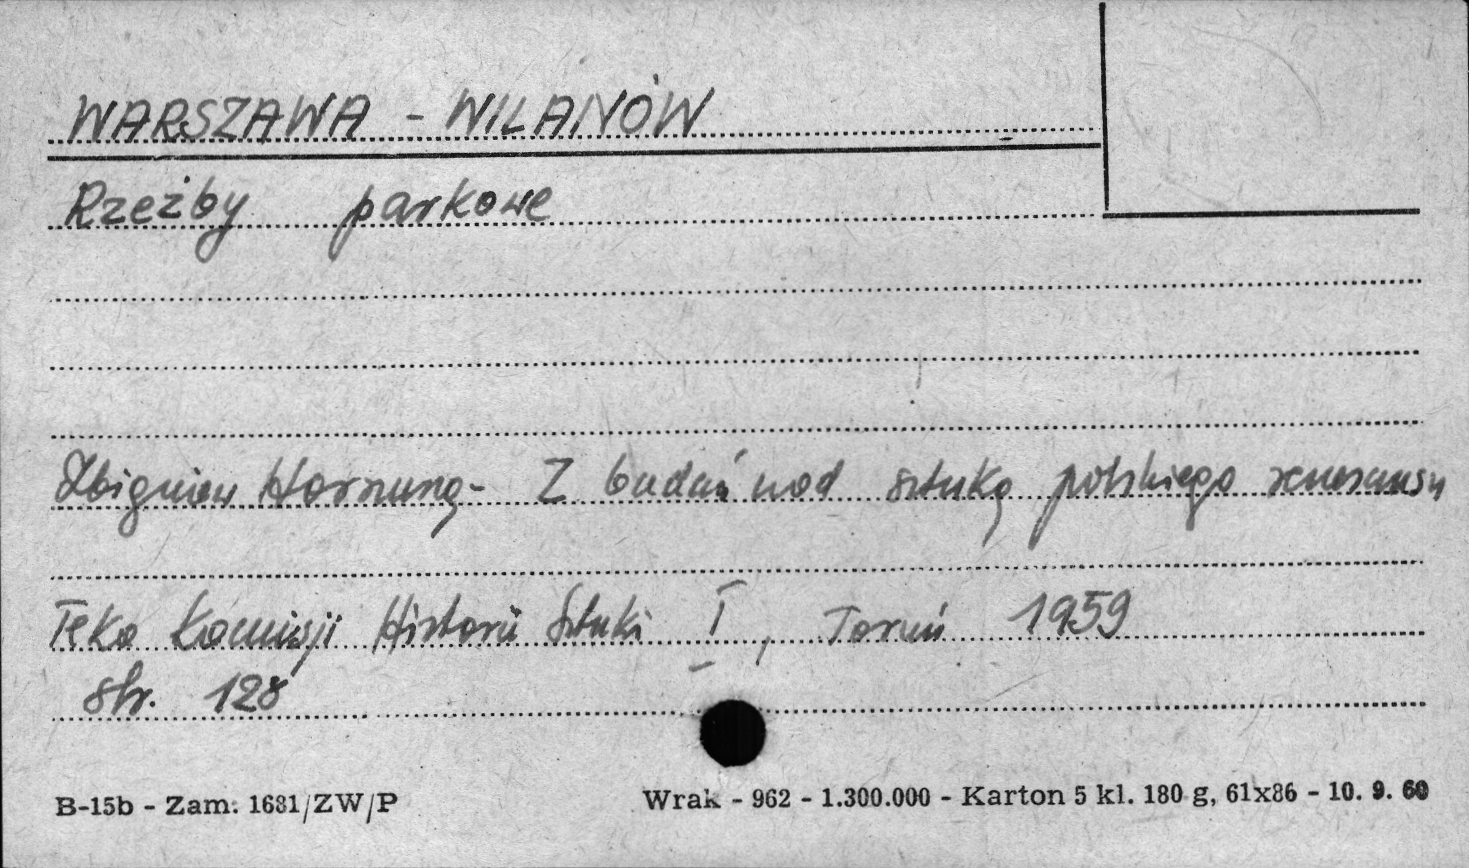 WARSZAWA - WILANÓW
Rzeźby parkowe
Zbigniew Hornung - Z badań nad sztuką polskiego renesansu
Teka Komisji Historii Sztuki I, Toruń 1959
str. 128
B-15b - Zam. 1681/ZW/P
Wrak - 962 - 1.300.000 - Karton 5 kl. 180 g, 61x86 - 10. 9. 60